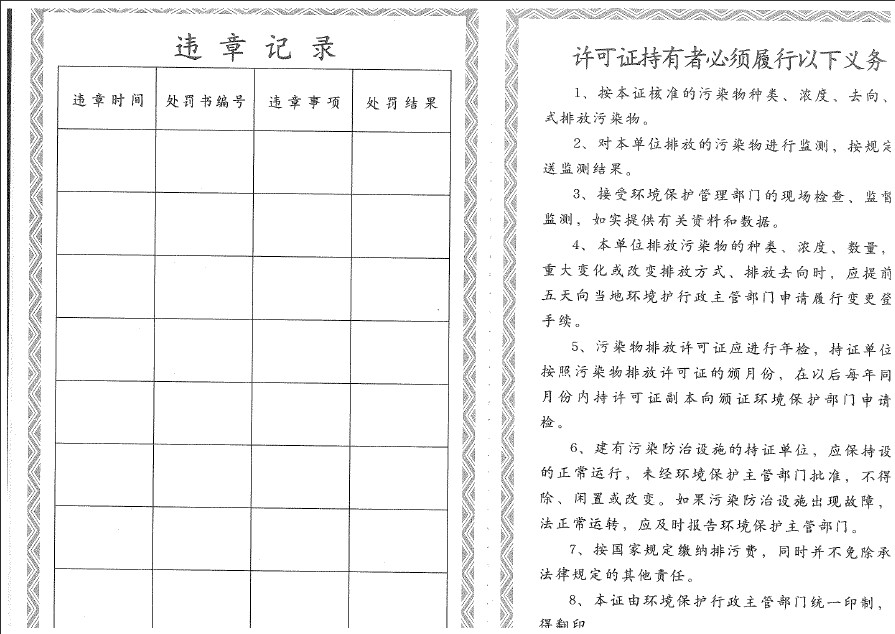 违章记录
违章时间 处罚书编号 违章事项 处罚结果
许可证持有者必须履行以下义务
1、按本证核准的污染物种类、浓度、去向、
式排放污染物。
2、对本单位排放的污染物进行监测，按规定
送监测结果。
3、接受环境保护管理部门的现场检查、监督
监测，如实提供有关资料和数据。
4、本单位排放污染物的种类、浓度、数量，
重大变化或改变排放方式、排放去向时，应提前
五天向当地环境护行政主管部门申请履行变更登
手续。
5、污染物排放许可证应进行年检，持证单位
按照污染物排放许可证的颁月份，在以后每年同
月份内持许可证副本向颁证环境保护部门申请
检。
6、建有污染防治设施的持证单位，应保持设
的正常运行，未经环境保护主管部门批准，不得
除、闲置或改变。如果污染防治设施出现故障，
法正常运转，应及时报告环境保护主管部门。
7、按国家规定缴纳排污费，同时并不免除承
法律规定的其他责任。
8、本证由环境保护行政主管部门统一印制，
得翻印